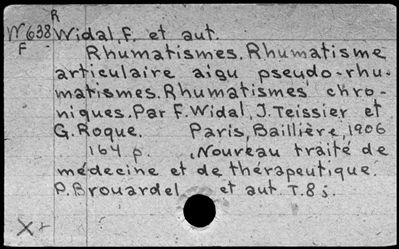 R
W638 Widal, F. et aut.
F Rhumatismes. Rhumatisme
articulaire aigu pseudo-rhu-
matismes. Rhumatismes chro-
niques. Par F. Widal, J. Teissier et
G. Roque. Paris, Baillière, 1906
164 p. (Nouveau traité de
médecine et de thérapeutique.
P. Brouardel et aut. T. 8;
X+